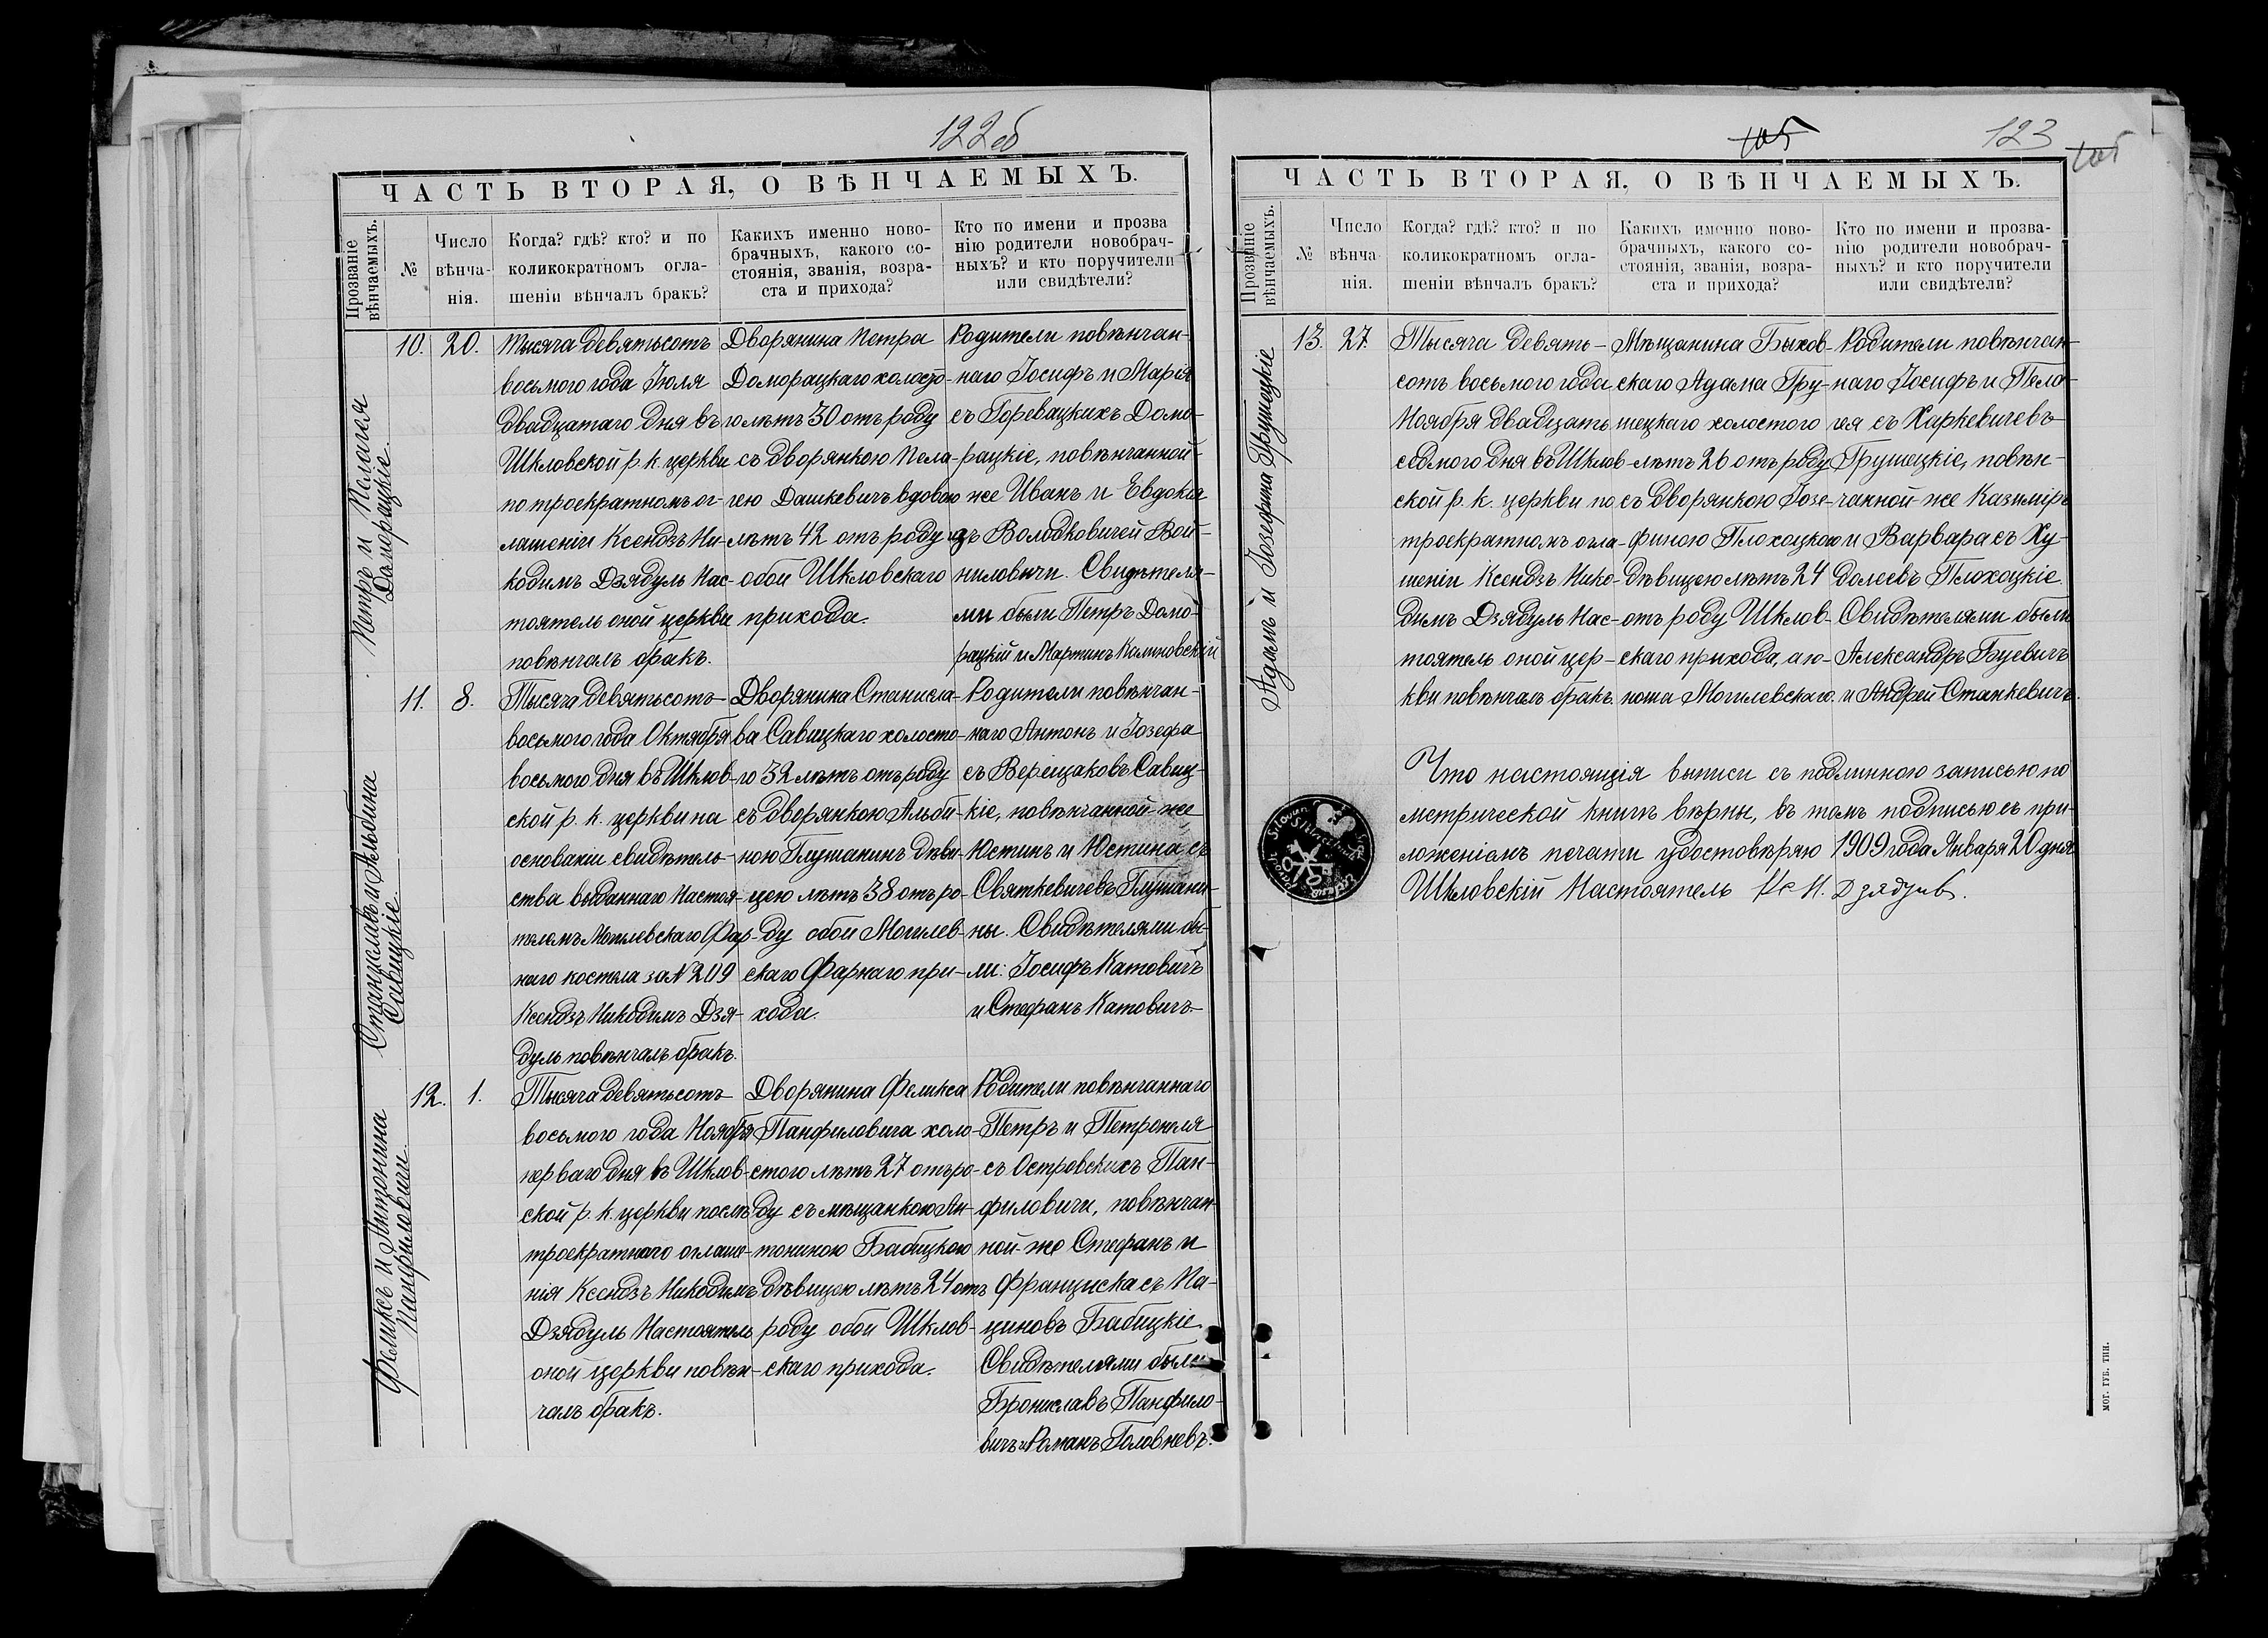 122об
ЧАСТЬ ВТОРАЯ, О ВѢНЧАЕМЫХЪ.
Прозваніе
вѣнчаемыхъ.
№
Число
вѣнча-
нія.
Когда? гдѣ? кто? и по
коликократномъ огла-
шеніи вѣнчалъ бракъ?
Какихъ именно ново-
брачныхъ, какого со-
стоянія, званія, возра-
ста и прихода?
Кто по имени и прозва
нію родители новобрач-
ныхъ? и кто поручители
или свидѣтели?
Петръ и Пелагея
Доморацкіе.
10.
20.
Тысяча девятьсотъ
восьмого года Іюля
двадцатаго дня въ
Шкловской р. к. церкви
по троекратномъ ог-
лашеніи Ксендзъ Ни-
кодимъ Дзядуль Нас-
тоятель оной церкви
повѣнчалъ бракъ.
Дворянина Петра
Доморацкаго холосто-
го лѣтъ 30 отъ роду
съ дворянкою Пела-
геею Дашкевичъ вдовою
лѣтъ 42 отъ роду
обои Шкловскаго
прихода.
Родители повѣнчан-
наго Іосифъ и Марія
съ Горевацкихъ Домо-
рацкіе, повѣнчанной-
же Иванъ и Евдокія
изъ Володковичей Вой-
ниловичи. Свидѣтеля-
ми были Петръ Домо-
рацкій и Мартинъ Калиновскій
Станиславъ и Альбина
Савицкіе.
11.
8.
Тысяча девятьсотъ
восьмого года Октября
восьмого дня въ Шклов-
ской р. к. церкви на
основаніи свидѣтель-
ства выданнаго Настоя-
телемъ Могилевскаго Фар-
наго костела за № 209
Ксендзъ Никодимъ Дзя-
дуль повѣнчалъ бракъ.
Дворянина Станисла-
ва Савицкаго холосто-
го 32 лѣтъ отъ роду
съ дворянкою Альби-
ною Глушанинъ дѣви-
цею лѣтъ 38 отъ ро-
ду обои Могилев-
скаго Фарнаго при-
хода.
Родители повѣнчан-
наго Антонъ и Іозефа
съ Верещаковъ Савиц-
кіе, повѣнчанной-же
Юстинъ и Юстина съ
Святкевичевъ Глушани-
ны. Свидѣтелями бы-
ли: Іосифъ Катовичъ
и Стефанъ Катовичъ.
Феликсъ и Антонина
Панфиловичи.
12.
1.
Тысяча девятьсотъ
восьмого года Ноября
перваго дня въ Шклов-
ской р. к. церкви послѣ
троекратнаго оглаше-
нія Ксендзъ Никодимъ
Дзядуль Настоятель
оной церкви повѣн-
чалъ бракъ.
Дворянина Феликса
Панфиловича холо-
стого лѣтъ 27 отъ ро-
ду съ мѣщанкою Ан-
тониною Бабицкою
дѣвицею лѣтъ 24 отъ
роду обои Шклов-
скаго прихода.
Родители повѣнчаннаго
Петръ и Петронеля
съ Островскихъ Пан-
филовичи, повѣнчан-
ной-же Стефанъ и
Франциска съ Па-
циновъ Бабицкіе.
Свидѣтелями были
Брониславъ Панфило-
вичъ и Романъ Головневъ.
105
123
105
ЧАСТЬ ВТОРАЯ, О ВѢНЧАЕМЫХЪ.
Прозваніе
вѣнчаемыхъ.
№
Число
вѣнча-
нія.
Когда? гдѣ? кто? и по
коликократномъ огла-
шеніи вѣнчалъ бракъ?
Какихъ именно ново-
брачныхъ, какого со-
стоянія, званія, возра-
ста и прихода?
Кто по имени и прозва-
нію родители новобрач-
ныхъ? и кто поручители
или свидѣтели?
Адамъ и Іозефина Грушецкіе
13.
27
Тысяча девять-
сотъ восьмого года
Ноября двадцать
седмого дня въ Шклов-
ской р. к. церкви по
троекратномъ огла-
шеніи Ксендзъ Нико-
димъ Дзядуль Нас-
тоятель оной цер-
кви повѣнчалъ бракъ.
Мѣщанина Быхов-
скаго Адама Гру-
шецкаго холостого
лѣтъ 26 отъ роду
съ дворянкою Іозе-
финою Плохоцкою
дѣвицею лѣтъ 24
отъ роду Шклов-
скаго прихода, а ю-
ноша Могилевскаго.
Родители повѣнчан-
наго Іосифъ и Пела-
гея съ Харкевичевъ
Грушецкіе, повѣн-
чанной-же Казиміръ
и Варвара съ Ху-
долеевъ Плохоцкіе.
Свидѣтелями были
Александръ Буевичъ
и Андрей Станкевичъ.
Что настоящія выписи съ подлинною записью по
метрической книгѣ вѣрны, въ томъ подписью съ при-
ложеніемъ печати удостовѣряю 1909 года Января 20 дня
Шкловскій Настоятель Кс Н. Дзядуль.
МОГ. ГУБ. ТИП.